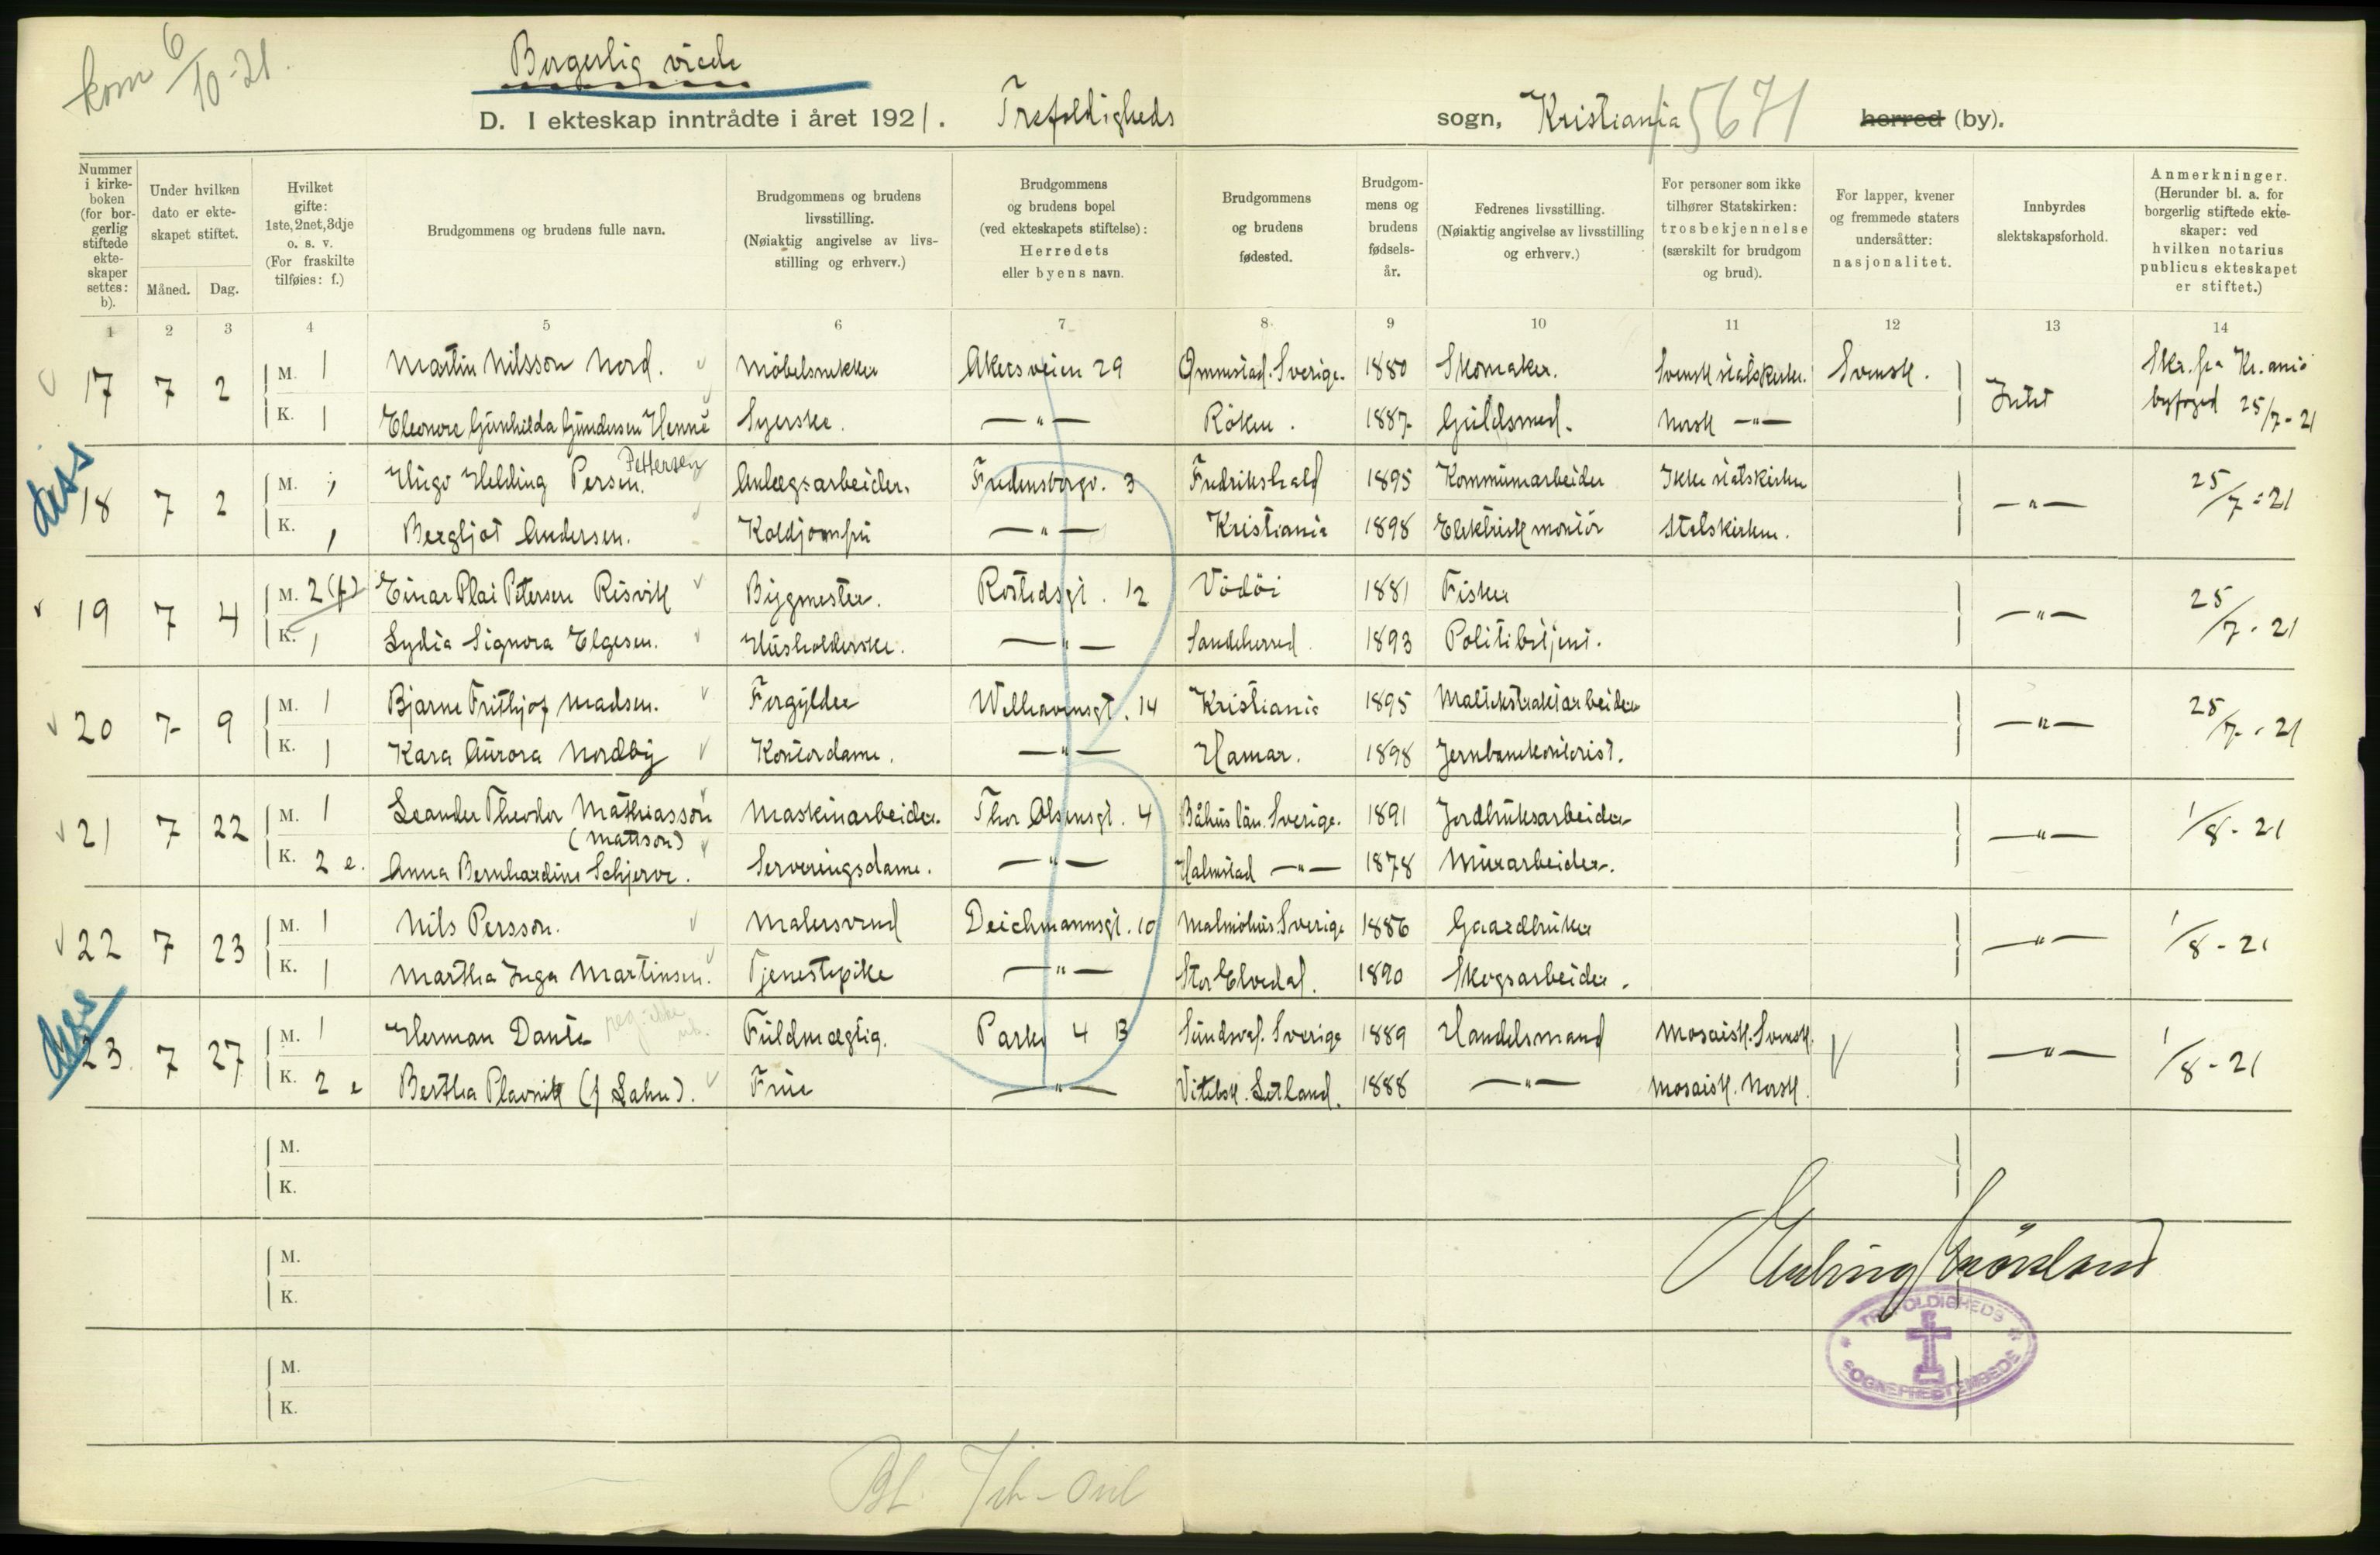 kom 6/10-21.
Borgerlig viede
D. I ekteskap inntrådte i året 1921. Trefoldigheds sogn, Kristiania 5671 herred (by).
Nummer i kirkeboken (for borgerlig stiftede ekteskaper settes: b).
Under hvilken dato er ekteskapet stiftet.
Måned. Dag.
Hvilket gifte: 1ste, 2net, 3dje o. s. v. (For fraskilte tilføies: f.)
Brudgommens og brudens fulle navn.
Brudgommens og brudens livsstilling. (Nøiaktig angivelse av livsstilling og erhverv.)
Brudgommens og brudens bopel (ved ekteskapets stiftelse): Herredets eller byens navn.
Brudgommens og brudens fødested.
Brudgommens og brudens fødselsår.
Fedrenes livsstilling. (Nøiaktig angivelse av livsstilling og erhverv.)
For personer som ikke tilhører Statskirken: trosbekjennelse (særskilt for brudgom og brud).
For lapper, kvener og fremmede staters undersåtter: nasjonalitet.
Innbyrdes slektskapsforhold.
Anmerkninger. (Herunder bl. a. for borgerlig stiftede ekteskaper: ved hvilken notarius publicus ekteskapet er stiftet.)
1 2 3 4 5 6 7 8 9 10 11 12 13 14
17 7 2 M. 1 Martin Nilsson Nord. Møbelsnekker Akersveien 29 Sverige. 1880 Skomaker. Svensk statskirke. Svensk. Intet Skr. fra Kr.ania byfoged 25/7-21
K. 1 Eleonore Gunhilda Gundersen Henne Syerske. —"— Røken. 1887 Guldsmed. Norsk —"—
diss
18 7 2 M. 1 Hugo Helding Persen. Pettersen Anlægsarbeider. Fredensborgv. 3 Fredrikshald 1895 Kommunearbeider Ikke statskirken —"— 25/7-21
K. 1 Bergljot Andersen. Koldjomfru —"— Kristiania 1898 Elektrisk montør Statskirken.
19 7 4 M. 2(f) Einar Plai Petersen Risvik Bygmester. Rostedsgt. 12 Vödöi 1881 Fisker —"— 25/7-21
K. 1 Lydia Signora Elgesen. Husholderske. —"— Sandeherred 1893 Politibetjent.
20 7 9 M. 1 Bjarne Frithjof Madsen. Forgylder Welhavensgt. 14 Kristiania 1895 Maltekstraktarbeider —"— 25/7-21
K. 1 Kara Aurora Nordby Kontordame. —"— Hamar. 1898 Jernbanekontorist.
21 7 22 M. 1 Leander Theodor Mathiasson (Mattson) Maskinarbeider. Thor Olsensgt. 4 Båhus län. Sverige. 1891 Jordbruksarbeider —"— 1/8-21
K. 2 e. Anna Bernhardine Schjerve. Serveringsdame. —"— Halmstad —"— 1878 Murarbeider.
22 7 23 M. 1 Nils Persson. Malersvend Deichmannsgt. 10 Malmöhus. Sverige 1886 Gaardbruker —"— 1/8-21
K. 1 Martha Inga Martinsen. Tjenestepike —"— Stor Elvedal. 1890 Skogsarbeider.
diss
23. 7 27 M. 1 Herman Dante Fuldmægtig. Parkv 4 B Sundsval. Sverige 1889 Handelsmand Mosaisk. Svensk. —"— 1/8-21
K. 2 e Bertha Plavnik (f Lahn). Frue —"— Vitebsk. Letland. 1888 —"— Mosaisk. Norsk.
M.
K.
M.
K.
M.
K.
TREFOLDIGHEDS SOGNEPRESTEMBEDE
Bl.